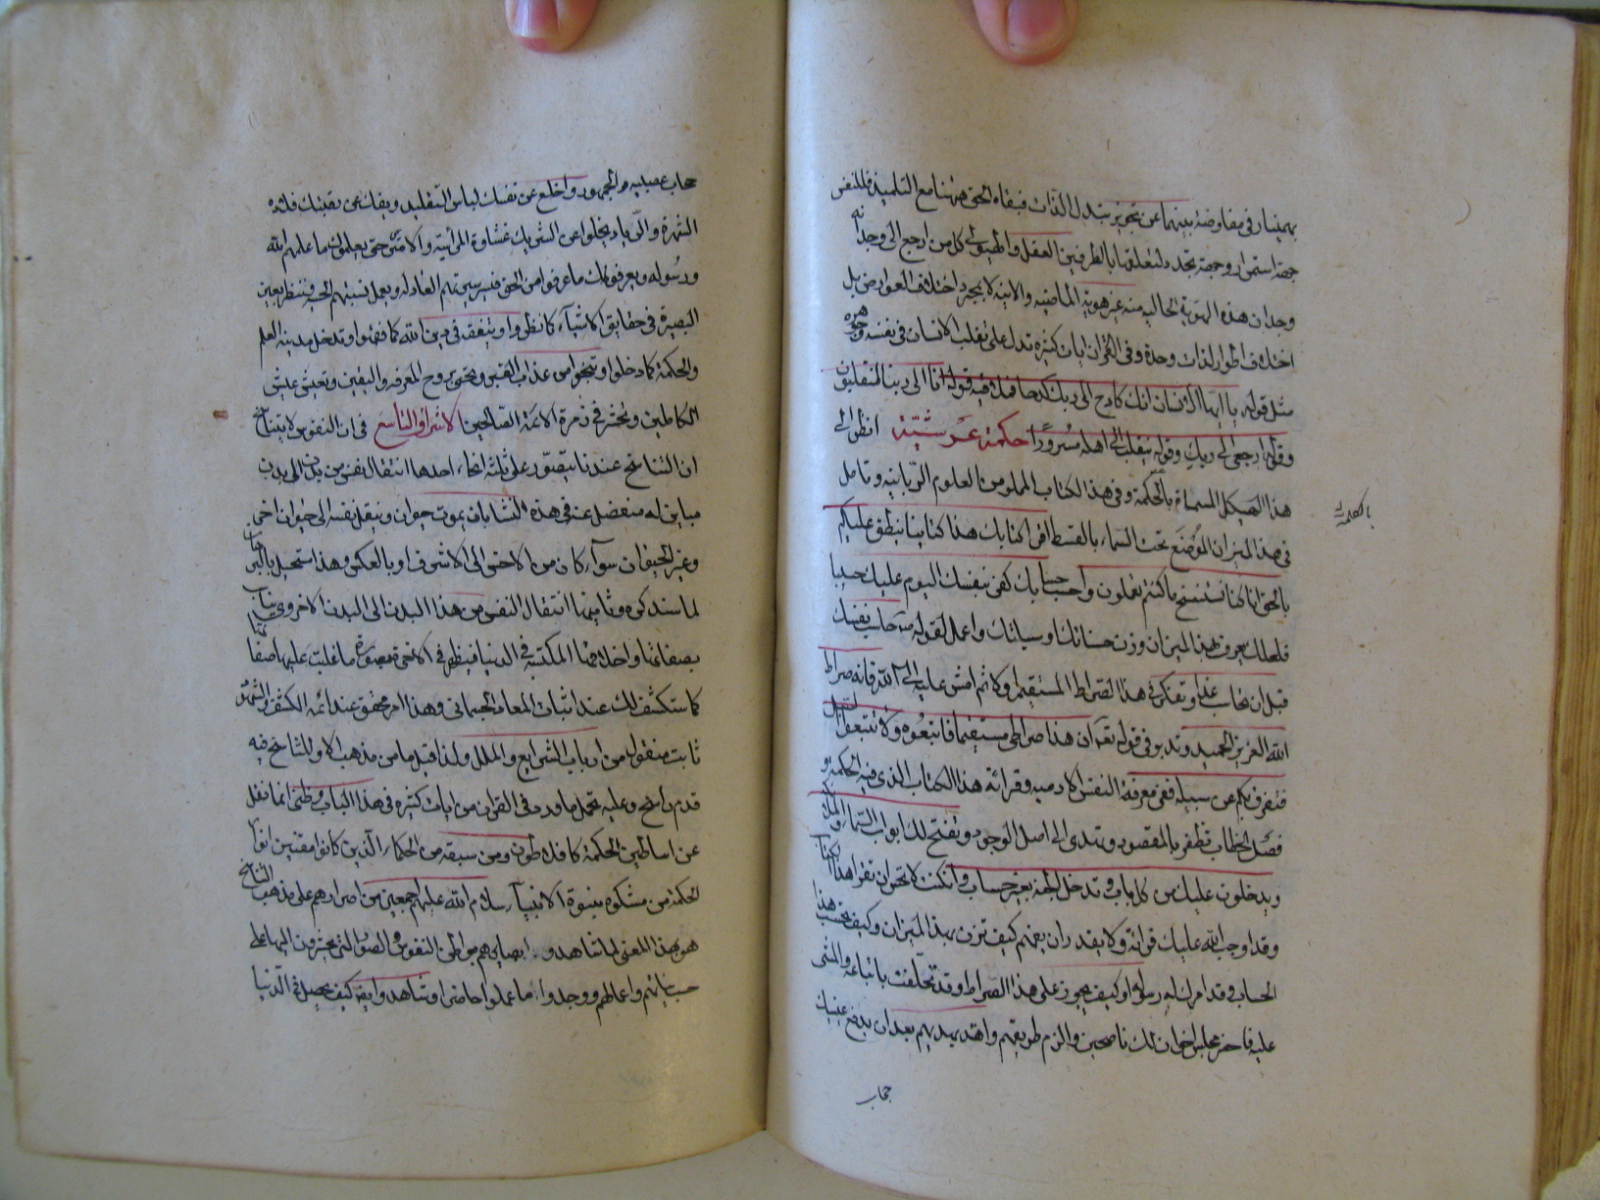 بهمنيار في مفاوضة بينهما عن تجويز تبدل الذات فبقاء الحق ههنا مع التلميذ فللنفس
جهة استمرار وجهة تجدد لتعلقها بالطرفين العقل والهيولى كل من ارجع الى وجدانه
وجد ان هذه الهوية الحالية منه غير هوية الماضية والاتية لا بمجرد اختلاف العوارض بل
اختلاف اطوار لذات وحدة وفي القران ايات كثيرة تدل على تقلب الانسان في نفسه وجوهره
مثل قوله يا ايها الانسان انك كادح الى ربك كدحا فملاقيه قوله انا الى ربنا لمنقلبون
وقوله ارجعي الى ربك وقوله ينقلب الى اهله مسرورا حكمة عرشية انظر الى
هذا الهيكل المسماة بالحكمة وفي هذا الكتاب المملو من العلوم الربانية وتامل
بالكلمة
في هذا الميزان الموضع تحت السماء بالقسط اقرا كتابك هذا كتابنا ينطق عليكم
بالحق انا كنا نستنسخ ما كنتم تعملون واحسب حسابك كفى بنفسك اليوم عليك حسيبا
فلعلك يعرف بهذا الميزان وزن حسناتك وسيئاتك واعمل لقوله حاسب نفسك
قبل ان تحاسب غدا وتفكر في هذا الصراط المستقيم اولا ثم امش عليه الى الله فانه صراط
الله العزيز الحميد وتدبر في قوله تعه ان هذا صراطي مستقيما فاتبعوه ولا تتبعوا السبل
فتفرق بكم عن سبيله ففي معرفة النفس الادمية وقرائة هذا الكتاب الذي فيه الحكمة و
فصل الخطاب تظفر بالمقصود وتهتدى الى اصل الوجود وتفتح لك ابواب السماء والملائكة
ويدخلون عليك من كل باب وتدخل الجنة بغير حساب وان كنت لا تحسن ان تقرا هذا الكتاب
وقد اوجب الله عليك قرائته ولا يقدر ان يفهم كيف تزن بهذا الميزان وكيف تحسب هذا
الحساب وقد امرك له رسوله او كيف يجوز على هذا الصراط وقد تخلفت باتباعه والمشى
عليه فاحضر مجلس اخوان لك ناصحين والزم طريقهم واهتد بهديهم بعد ان يدفع عينيك
حجاب
حجاب عصبية الجمهور واخلع عن نفسك لباس التقليد ويفك عن رقبتك قلاده
الشهرة والرياء ويخلوا عن الشريك غشاوة المرائية والامتراء حتى يعلموك ما علمهم الله
ورسوله ويعرفونك ما عرفوا من الحق فتسير بسيرتهم العادله ويعمل بسنتهم الحسنة وتنظر بعين
البصيرة في حقايق الاشياء كما نظروا ويتفقه في دين الله كما فقهوا وتدخل مدينة العلم
والحكمة كما دخلوا وينجوا من عذاب القبر وتحيى بروح المعرفه واليقين وتعيش عيش
الكاملين وتحشر في زمرة الائمة الصالحين الاشراق التاسع في ان النفوس لا يتناسخ
ان التناسخ عندنا يتصور على ثلثة انحاء احدها انتقال نفس من بدن الى بدن
مباين له منفصل عنه في هذه النشاة بان يموت حيوان وينقل نفسه الى حيوان اخر
وغير الحيوان سواء كان من الاخس الى الاشرف او بالعكس وهذا مستحيل بالبرهان
لما سنذكره وثانيها انتقال النفس من هذا البدن الى البدن الاخروى مناسب
بصفاتها واخلاقها المكتسبة في الدنيا فيظهر في الاخرة بصورة ما غلبت عليها صفاتها
كما ستكشف لك عند اثبات المعاد الجسمانى وهذا امر محقق عند ائمة الكشف والشهود
ثابت منقول من ارباب الشرايع والملل ولذا قيل ما من مذهب الا وللتناسخ فيه
قدم راسخ وعليه تحمل ما ورد في القران من ايات كثيرة في هذا الباب وظنى انما نقل
عن اساطين الحكمة كافلاطون ومن سبقه من الحكماء الذين كانوا مقتبسين انوار
الحكمة من مشكوه نبوة الانبياء سلام الله عليهم اجمعين من اصرارهم على مذهب التناسخ
هو بهذا المعنى لما شاهدوا ببصايرهم بواطن النفوس والصور التي يحشرون اليها على
حسب نياتهم واعمالهم ووجدوا ما عملوا حاضرا وشاهدوا ايضه كيف يحصل في الدنيا